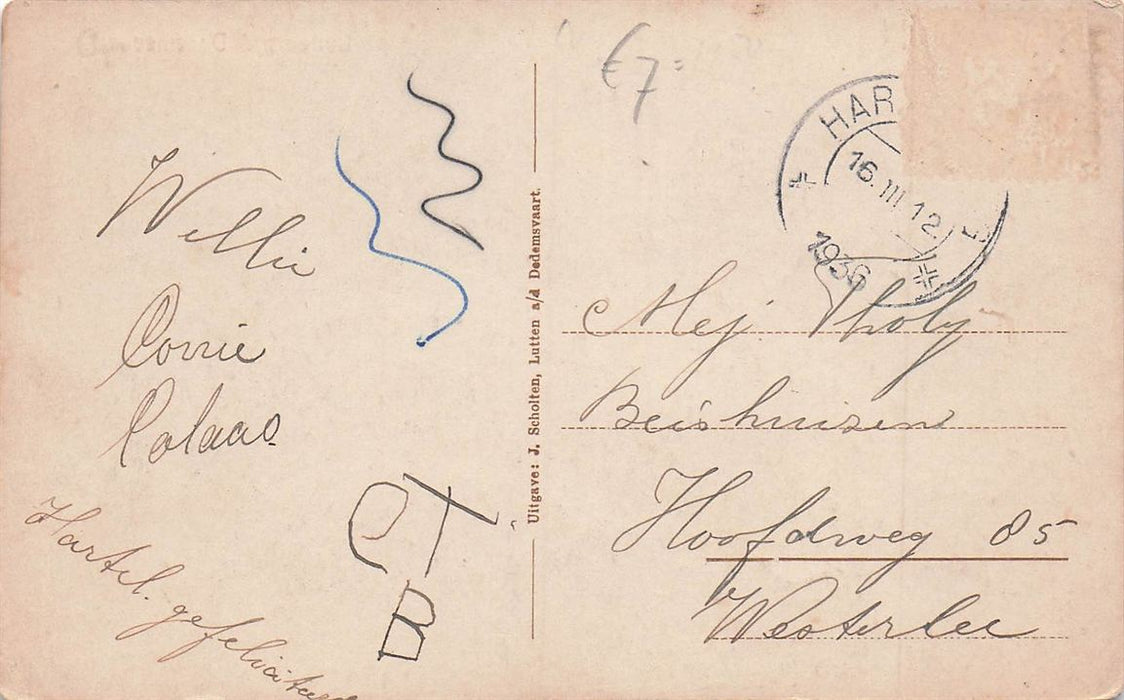 Willie
Corrie
Colaas.
Hartel. gefeliciteerd
CT
B
Uitgave: J. Scholten, Lutten a/d Dedemsvaart.
€7=
HAR
16.III.12
1936
Mej
Beishuizen
Hoofdweg 85
Westerlee